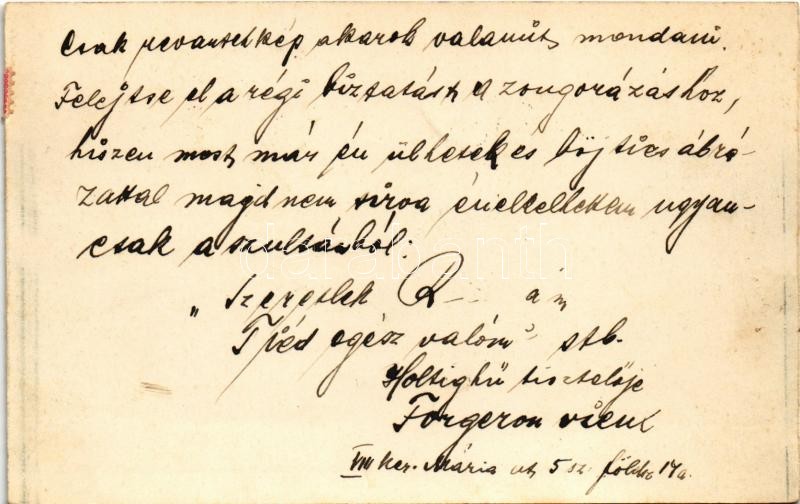 Csak revanschkép akarok valamit mondani.
Felejtse el a régi biztatást a zongorázáshoz,
hiszen most már én ülhetek és böjti ábrá-
zattal majdnem sírva énekelhetem ugyan-
csak a szultánból:
„Szeretlek R... ám
Tiéd egész valóm" stb.
Holtighű tisztelője
Forgeron
VIII ker. Mária ut 5 sz. földsz 17a.